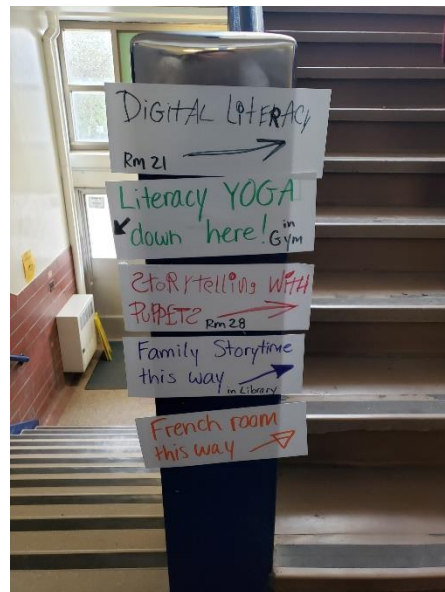 DiGiTAL LiTERACy
Rm 21
Literacy YOGA
down here! in Gym
StoRytelling WitH
PUPPETS Rm 28
Family Storytime
this way in Library
French room
this way